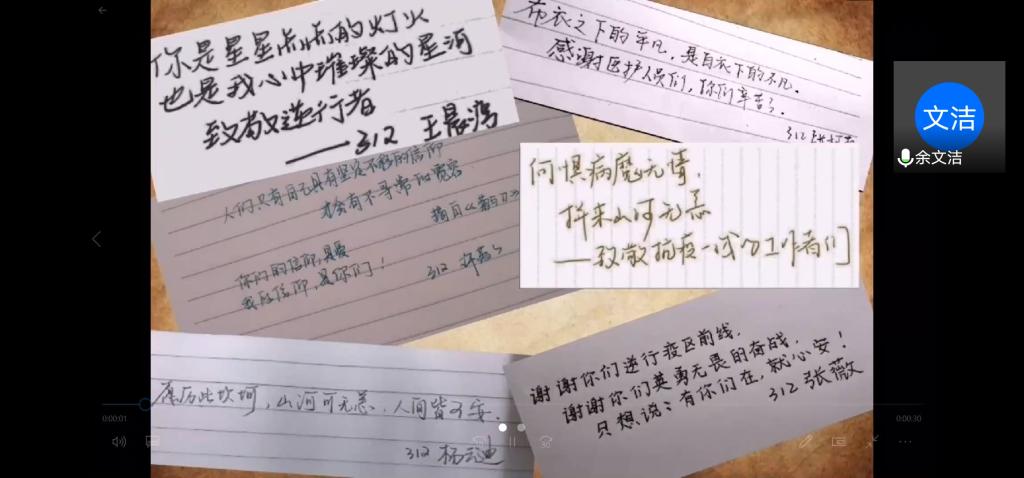 你是星星点点的灯火
也是我心中璀璨的星河
致敬逆行者
——312 王晨鸿
布衣之下的平凡，是白衣下的不凡。
感谢医护人员们，你们辛苦了。
312
人们只有自己具有坚定不移的信仰
才会有不寻常的
摘自《
你们的信仰，是爱
我的信仰，是你们！
312
何惧病魔无情，
择来山河无恙
——致敬抗疫一线的工作者们
愿历此坎坷，山河可无恙，人间皆可安。
312 杨
谢谢你们逆行疫区前线，
谢谢你们英勇无畏的奋战，
只想说：有你们在，就心安！
312 张薇
文洁
余文洁
0:00:01
0:00:30